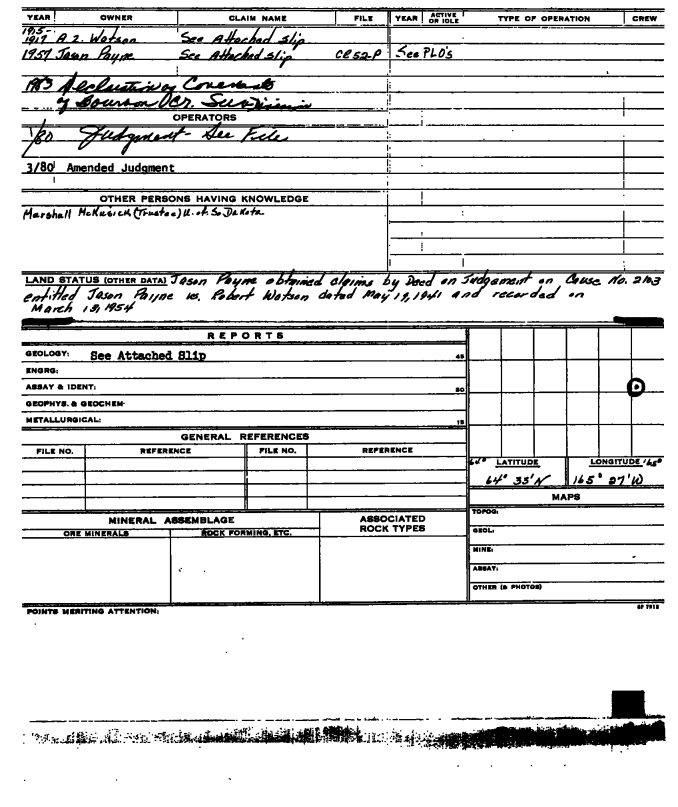 YEAR OWNER CLAIM NAME FILE YEAR ACTIVE OR IDLE TYPE OF OPERATION CREW
1915-
1917 A.Z. Watson See Attached slip
1957 Jason Payne See Attached slip CR52-P See PLO's
1983 Declaration of Covenants
of
OPERATORS
1/80 Judgment - See File
3/80 Amended Judgment
OTHER PERSONS HAVING KNOWLEDGE
Marshall McKusick (Trustee) U. of So. Dakota
LAND STATUS (OTHER DATA) Jason Payne obtained claims by Deed on Judgement on Cause No. 2103
entitled Jason Payne vs. Robert Watson dated May 19, 1941 and recorded on
March 15, 1954
REPORTS
GEOLOGY: See Attached Slip 45
ENGRG:
ASSAY & IDENT: 30
GEOPHYS. & GEOCHEM.
METALLURGICAL: 15
GENERAL REFERENCES
FILE NO. REFERENCE FILE NO. REFERENCE
64° LATITUDE LONGITUDE 165°
64° 35' N 165° 27' W
MAPS
TOPOG:
GEOL:
MINE:
ASSAY:
OTHER (& PHOTOS)
MINERAL ASSEMBLAGE ASSOCIATED ROCK TYPES
ORE MINERALS ROCK FORMING, ETC.
POINTS MERITING ATTENTION: